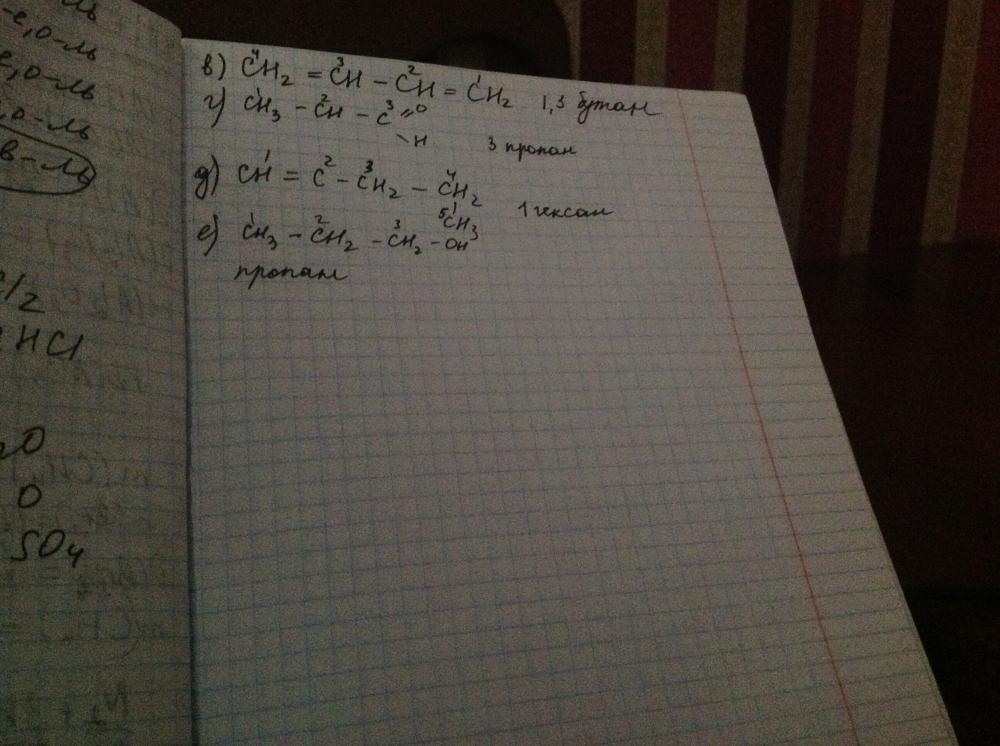 -е, о-ль
е, о-ль
, о-ль
в-ль
HCl
O
O
SO4
в) ⁴CH₂ = ³CH – ²CH = ¹CH₂ 1,3 бутан
г) ¹CH₃ – ²CH – ³C = O
– H
3 пропан
д) ¹CH = ²C – ³CH₂ – ⁴CH₂
⁵CH₃
1 гексан
е) ¹CH₃ – ²CH₂ – ³CH₂ – OH
пропан